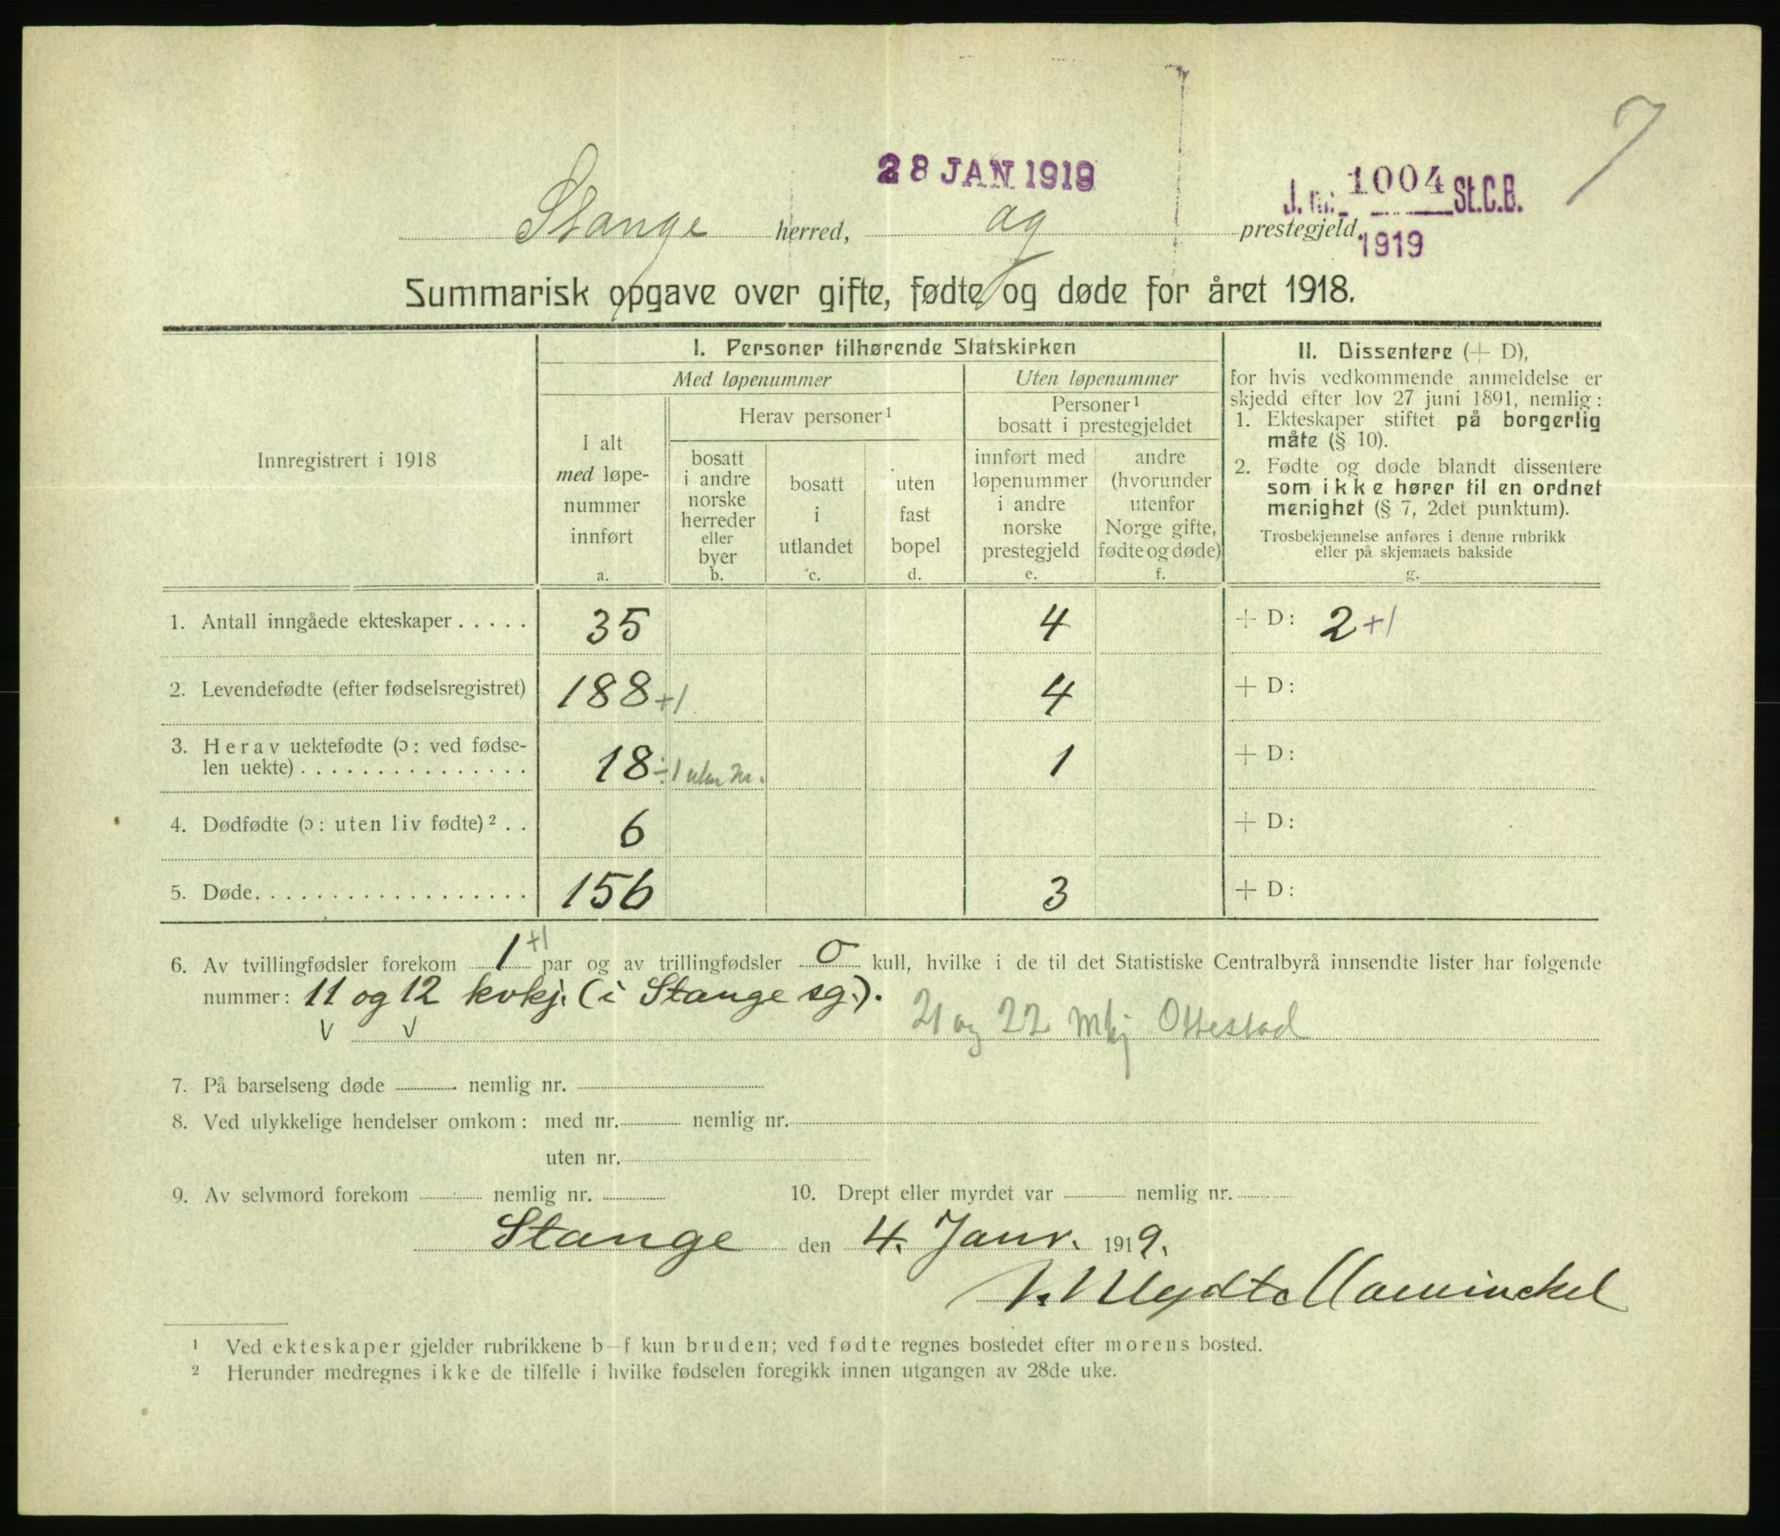 7
28 JAN 1919
J. nr. 1004 St.C.B.
1919
Stange herred, og prestegjeld.
Summarisk opgave over gifte, fødte og døde for året 1918.
Innregistrert i 1918
I. Personer tilhørende Statskirken
Med løpenummer
Uten løpenummer
I alt
med løpe-
nummer
innført
a.
Herav personer ¹
bosatt
i andre
norske
herreder
eller
byer
b.
bosatt
i
utlandet
c.
uten
fast
bopel
d.
Personer ¹
bosatt i prestegjeldet
innført med
løpenummer
i andre
norske
prestegjeld
e.
andre
(hvorunder
utenfor
Norge gifte,
fødte og døde)
f.
II. Dissentere (+ D),
for hvis vedkommende anmeldelse er
skjedd efter lov 27 juni 1891, nemlig:
1. Ekteskaper stiftet på borgerlig
måte (§ 10).
2. Fødte og døde blandt dissentere
som ikke hører til en ordnet
menighet (§ 7, 2det punktum).
Trosbekjennelse anføres i denne rubrikk
eller på skjemaets bakside
g.
1. Antall inngåede ekteskaper . . . . . 35 4 + D: 2 +1
2. Levendefødte (efter fødselsregistret) 188 +1 4 + D:
3. Herav uektefødte (ɔ: ved fødse-
len uekte) . . . . . . . . . . . . . . . 18 ÷1 uten nr. 1 + D:
4. Dødfødte (ɔ: uten liv fødte) ² . . 6 + D:
5. Døde. . . . . . . . . . . . . . . . . . 156 3 + D:
6. Av tvillingfødsler forekom 1 +1 par og av trillingfødsler 0 kull, hvilke i de til det Statistiske Centralbyrå innsendte lister har følgende
nummer: 11 og 12 kvkj. (i Stange sg.).
21 og 22 Mkj Ottestad
7. På barselseng døde nemlig nr.
8. Ved ulykkelige hendelser omkom: med nr. nemlig nr.
uten nr.
9. Av selvmord forekom nemlig nr. 10. Drept eller myrdet var nemlig nr.
Stange den 4. Janr. 1919.
¹ Ved ekteskaper gjelder rubrikkene b–f kun bruden; ved fødte regnes bostedet efter morens bosted.
² Herunder medregnes ikke de tilfelle i hvilke fødselen foregikk innen utgangen av 28de uke.